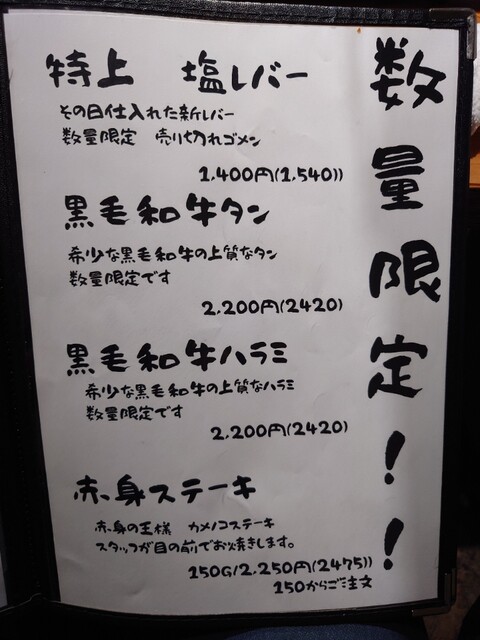 数量限定！！
特上　塩レバー
その日仕入れた新レバー
数量限定　売り切れゴメン
1,400円(1,540))
黒毛和牛タン
希少な黒毛和牛の上質なタン
数量限定です
2,200円(2420)
黒毛和牛ハラミ
希少な黒毛和牛の上質なハラミ
数量限定です
2,200円(2420)
赤身ステーキ
赤身の王様　カメノコステーキ
スタッフが目の前でお焼きします。
150G/2,250円(2475))
150からご注文